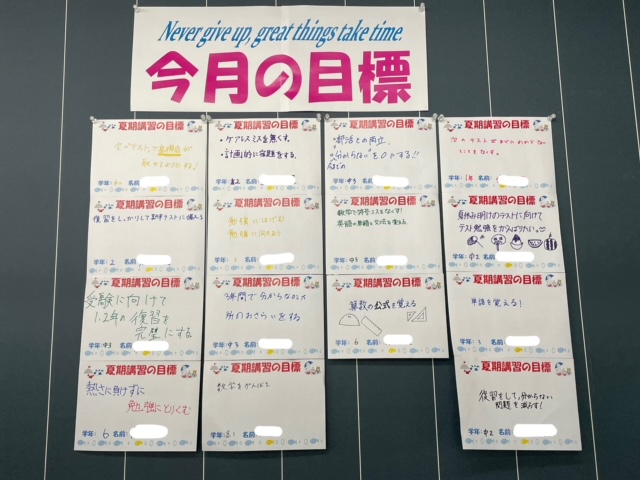 Never give up, great things take time.
今月の目標
夏期講習の目標
次のテストで
が
取れるように
学年:
名前:
夏期講習の目標
・ケアレスミスを無くす。
・計画的に宿題をする。
学年: 高2 名前:
夏期講習の目標
・部活との両立。
・"分からない"を0にする!!
学年: 中3 名前:
夏期講習の目標
次のテストで
学年: 1年 名前:
夏期講習の目標
復習をしっかりして実力テストに備える
学年: 2 名前:
夏期講習の目標
勉強にはげむ
勉強に
学年: 1 名前:
夏期講習の目標
数学で符号ミスをなくす!
英語の単語と文法を覚える
学年: 中3 名前:
夏期講習の目標
夏休み明けのテストに向けて
テスト勉強をがんばりたい。
学年: 中2 名前:
夏期講習の目標
受験に向けて
1.2年の復習を
完璧にする
学年: 中3 名前:
夏期講習の目標
3年間で分からなかった
所のおさらいをする
学年: 中3 名前:
夏期講習の目標
算数の公式を覚える
学年: 6 名前:
夏期講習の目標
単語を覚える!
学年: 名前:
夏期講習の目標
熱さに負けずに
勉強にとりくむ
学年: 6 名前:
夏期講習の目標
数学をがんばる
学年: 名前:
夏期講習の目標
復習をして、分からない
問題を減らす!
学年: 中2 名前: